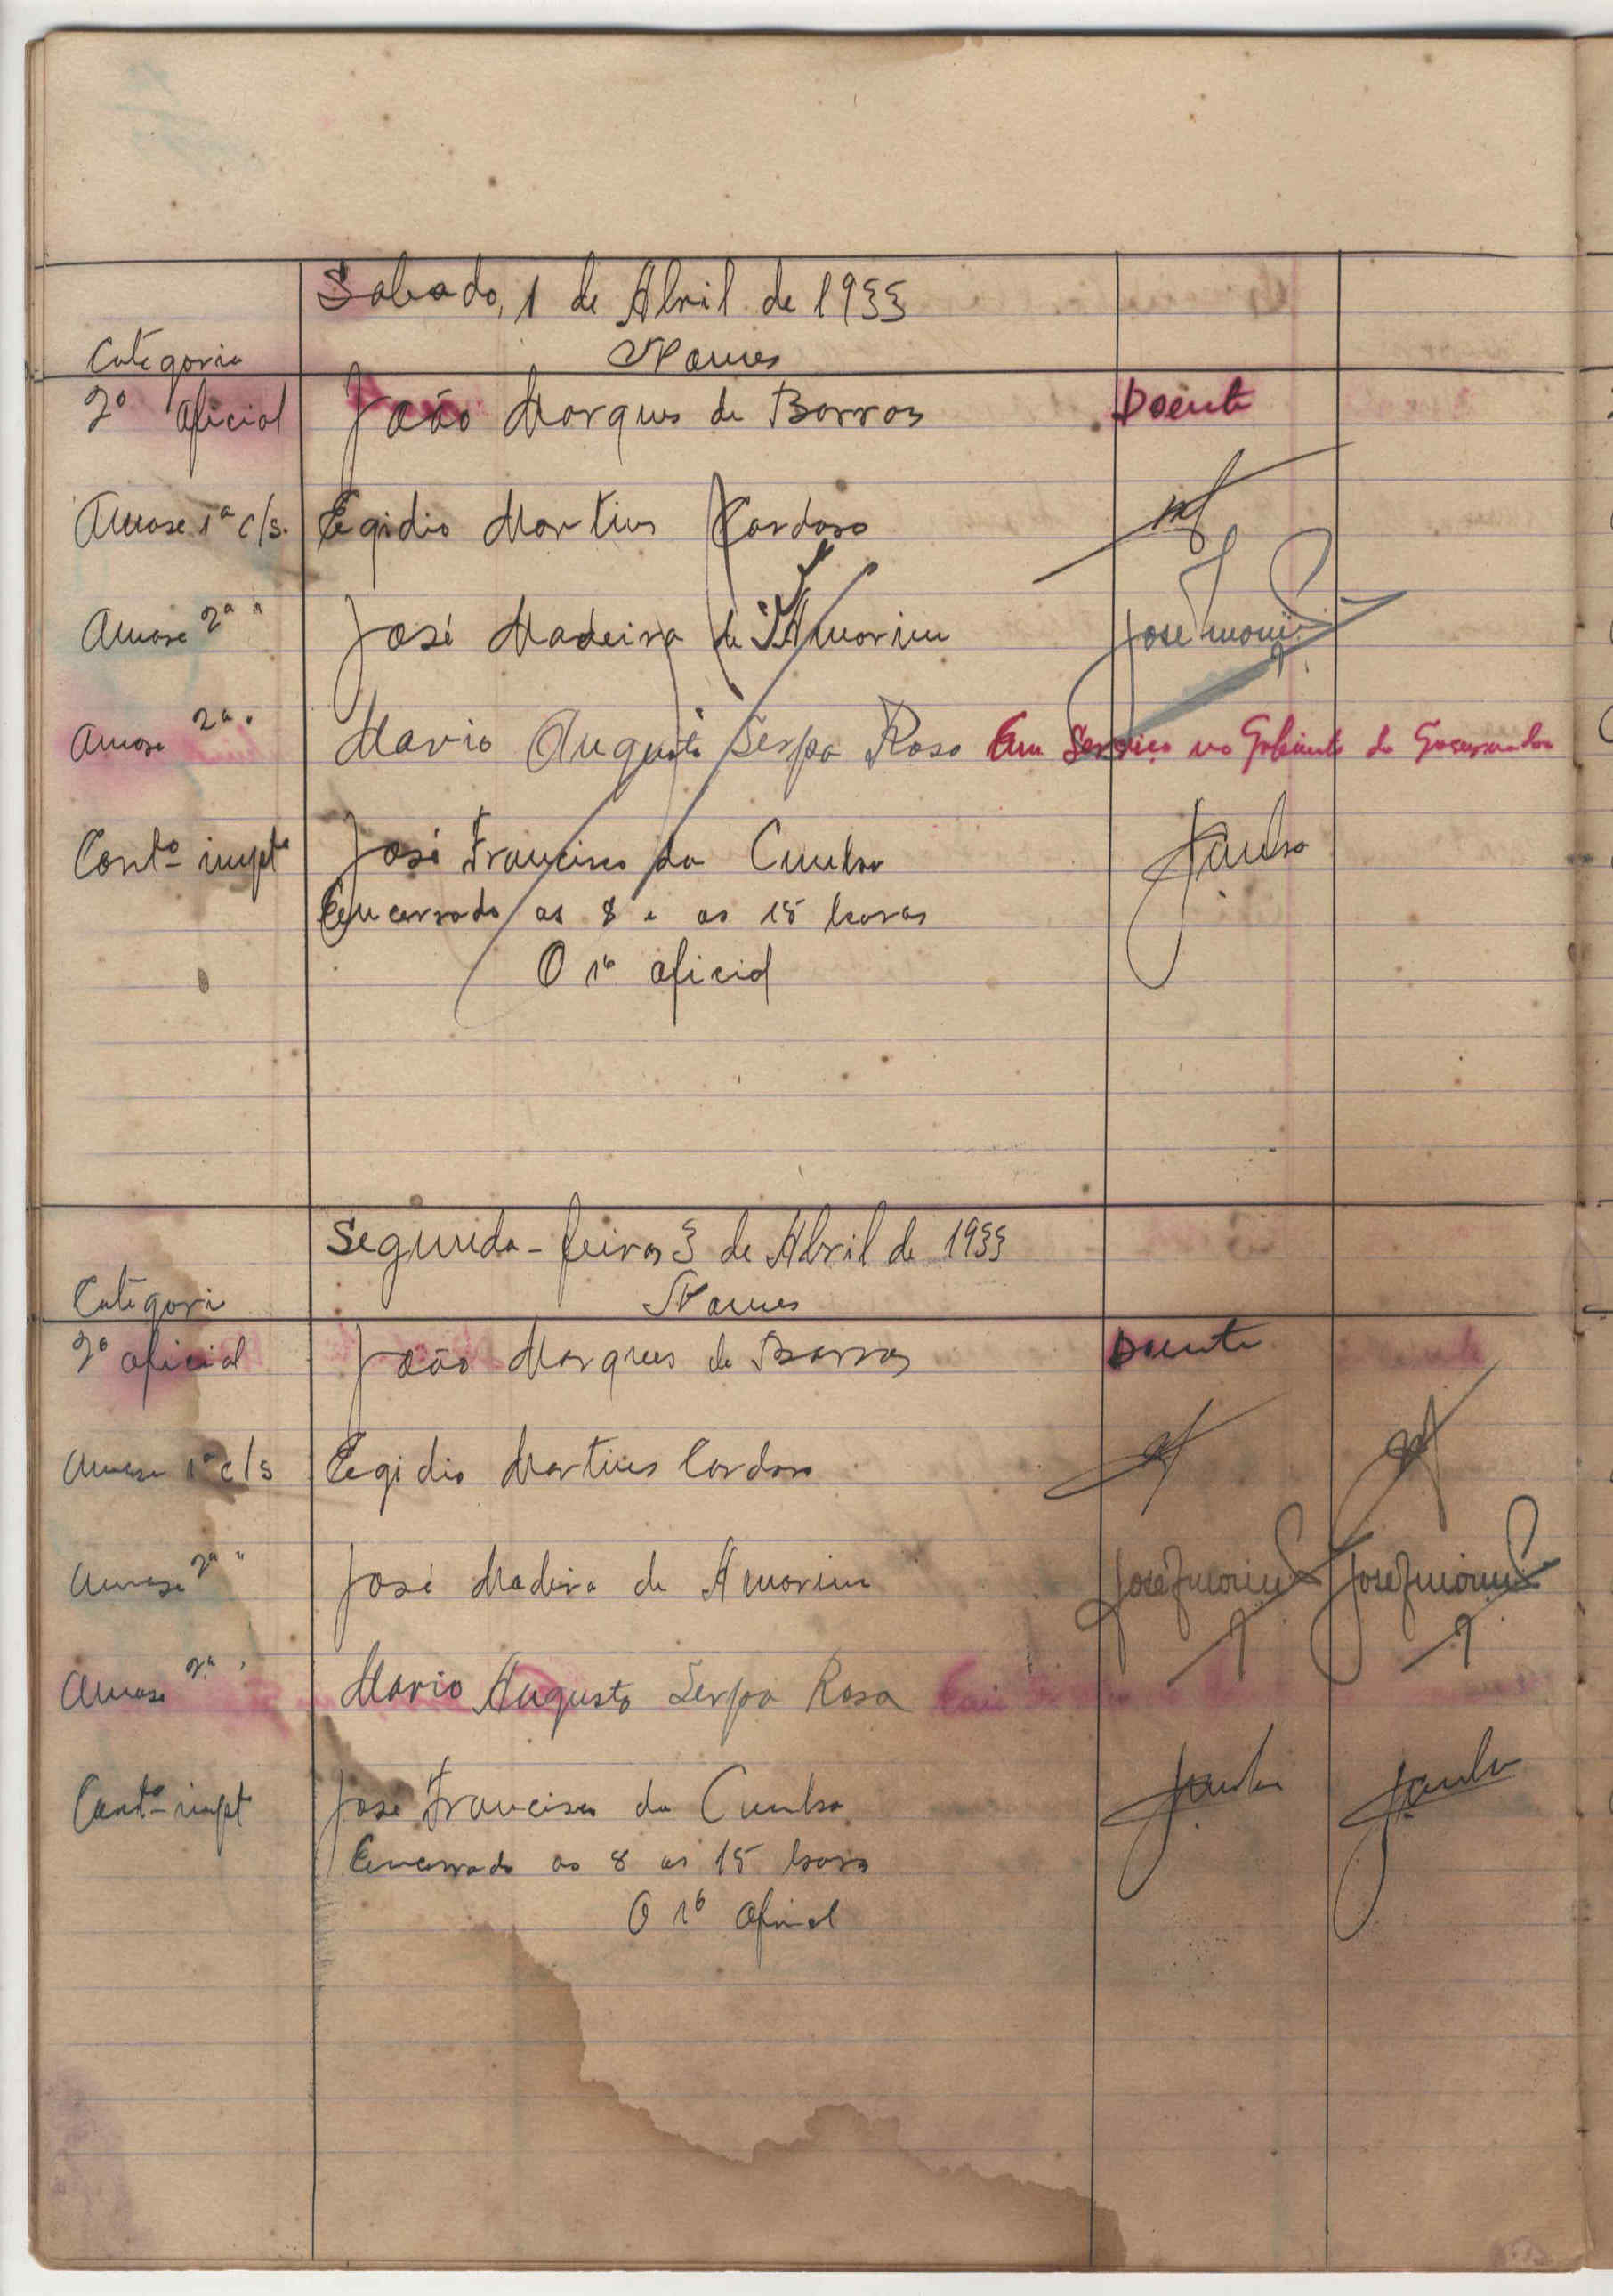 Sabado, 1 de Abril de 1933
Categoria Nomes
2º Oficial João Marques de Barros Doente
Amase 1ª c/s. Egidio Martins Cardoso
Amase 2ª " José Madeira de Amorim
Amase 2ª " Mario Augusto Serpa Rosa Em Serviço no Gabinete do Governador
Contº impt José Francisco da Cunha JCunha
Encerrado as 8 e as 15 horas
O 1º oficial
Segunda-feira 3 de Abril de 1933
Categori Nomes
2º oficial João Marques de Barros Doente
Amase 1ª c/s Egidio Martins Cardoso
Amase 2ª " José Madeira de Amorim
Amase 2ª " Mario Augusto Serpa Rosa Em
Contº impt José Francisco da Cunha JCunha JCunha
Encerrado as 8 as 15 horas
O 1º Oficial